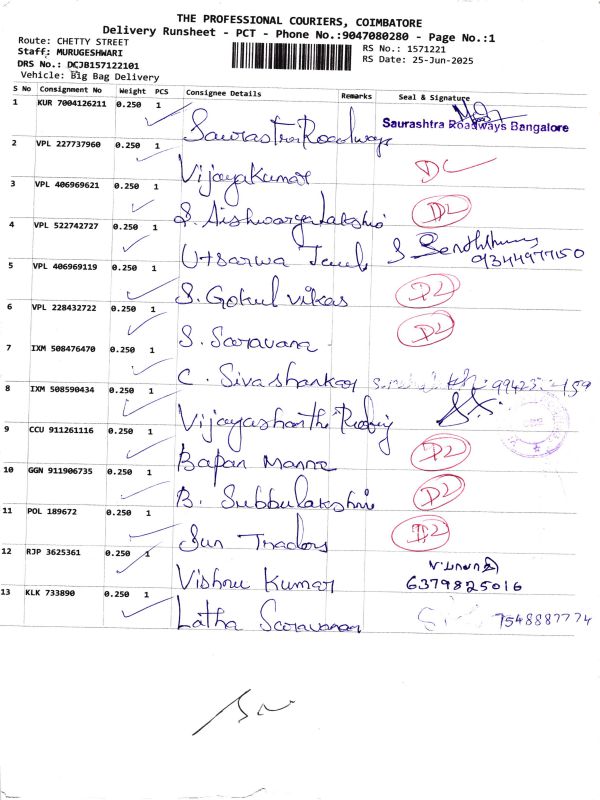 THE PROFESSIONAL COURIERS, COIMBATORE
Delivery Runsheet - PCT - Phone No.:9047080280 - Page No.:1
Route: CHETTY STREET
RS No.: 1571221
Staff: MURUGESHWARI
RS Date: 25-Jun-2025
DRS No.: DCJB157122101
Vehicle: Big Bag Delivery
S No Consignment No Weight PCS Consignee Details Remarks Seal & Signature
1 KUR 7004126211 0.250 1 Saurastra Roadways Saurashtra Roadways Bangalore
2 VPL 227737960 0.250 1 Vijayakumar DL
3 VPL 406969621 0.250 1 S. Aishwaryalakshmi DL
4 VPL 522742727 0.250 1 Utsarwa S 9344977150
5 VPL 406969119 0.250 1 S. Gokul vikas DL
6 VPL 228432722 0.250 1 S. Saravana DL
7 IXM 508476470 0.250 1 C. Sivashankar
8 IXM 508590434 0.250 1 Vijayashanthi
9 CCU 911261116 0.250 1 Bapan Manna DL
10 GGN 911906735 0.250 1 B. Subbulakshmi DL
11 POL 189672 0.250 1 Sun Traders DL
12 RJP 3625361 0.250 1 Vishnu Kumar 6379825016
13 KLK 733890 0.250 1 Latha Saravanan 7548887774